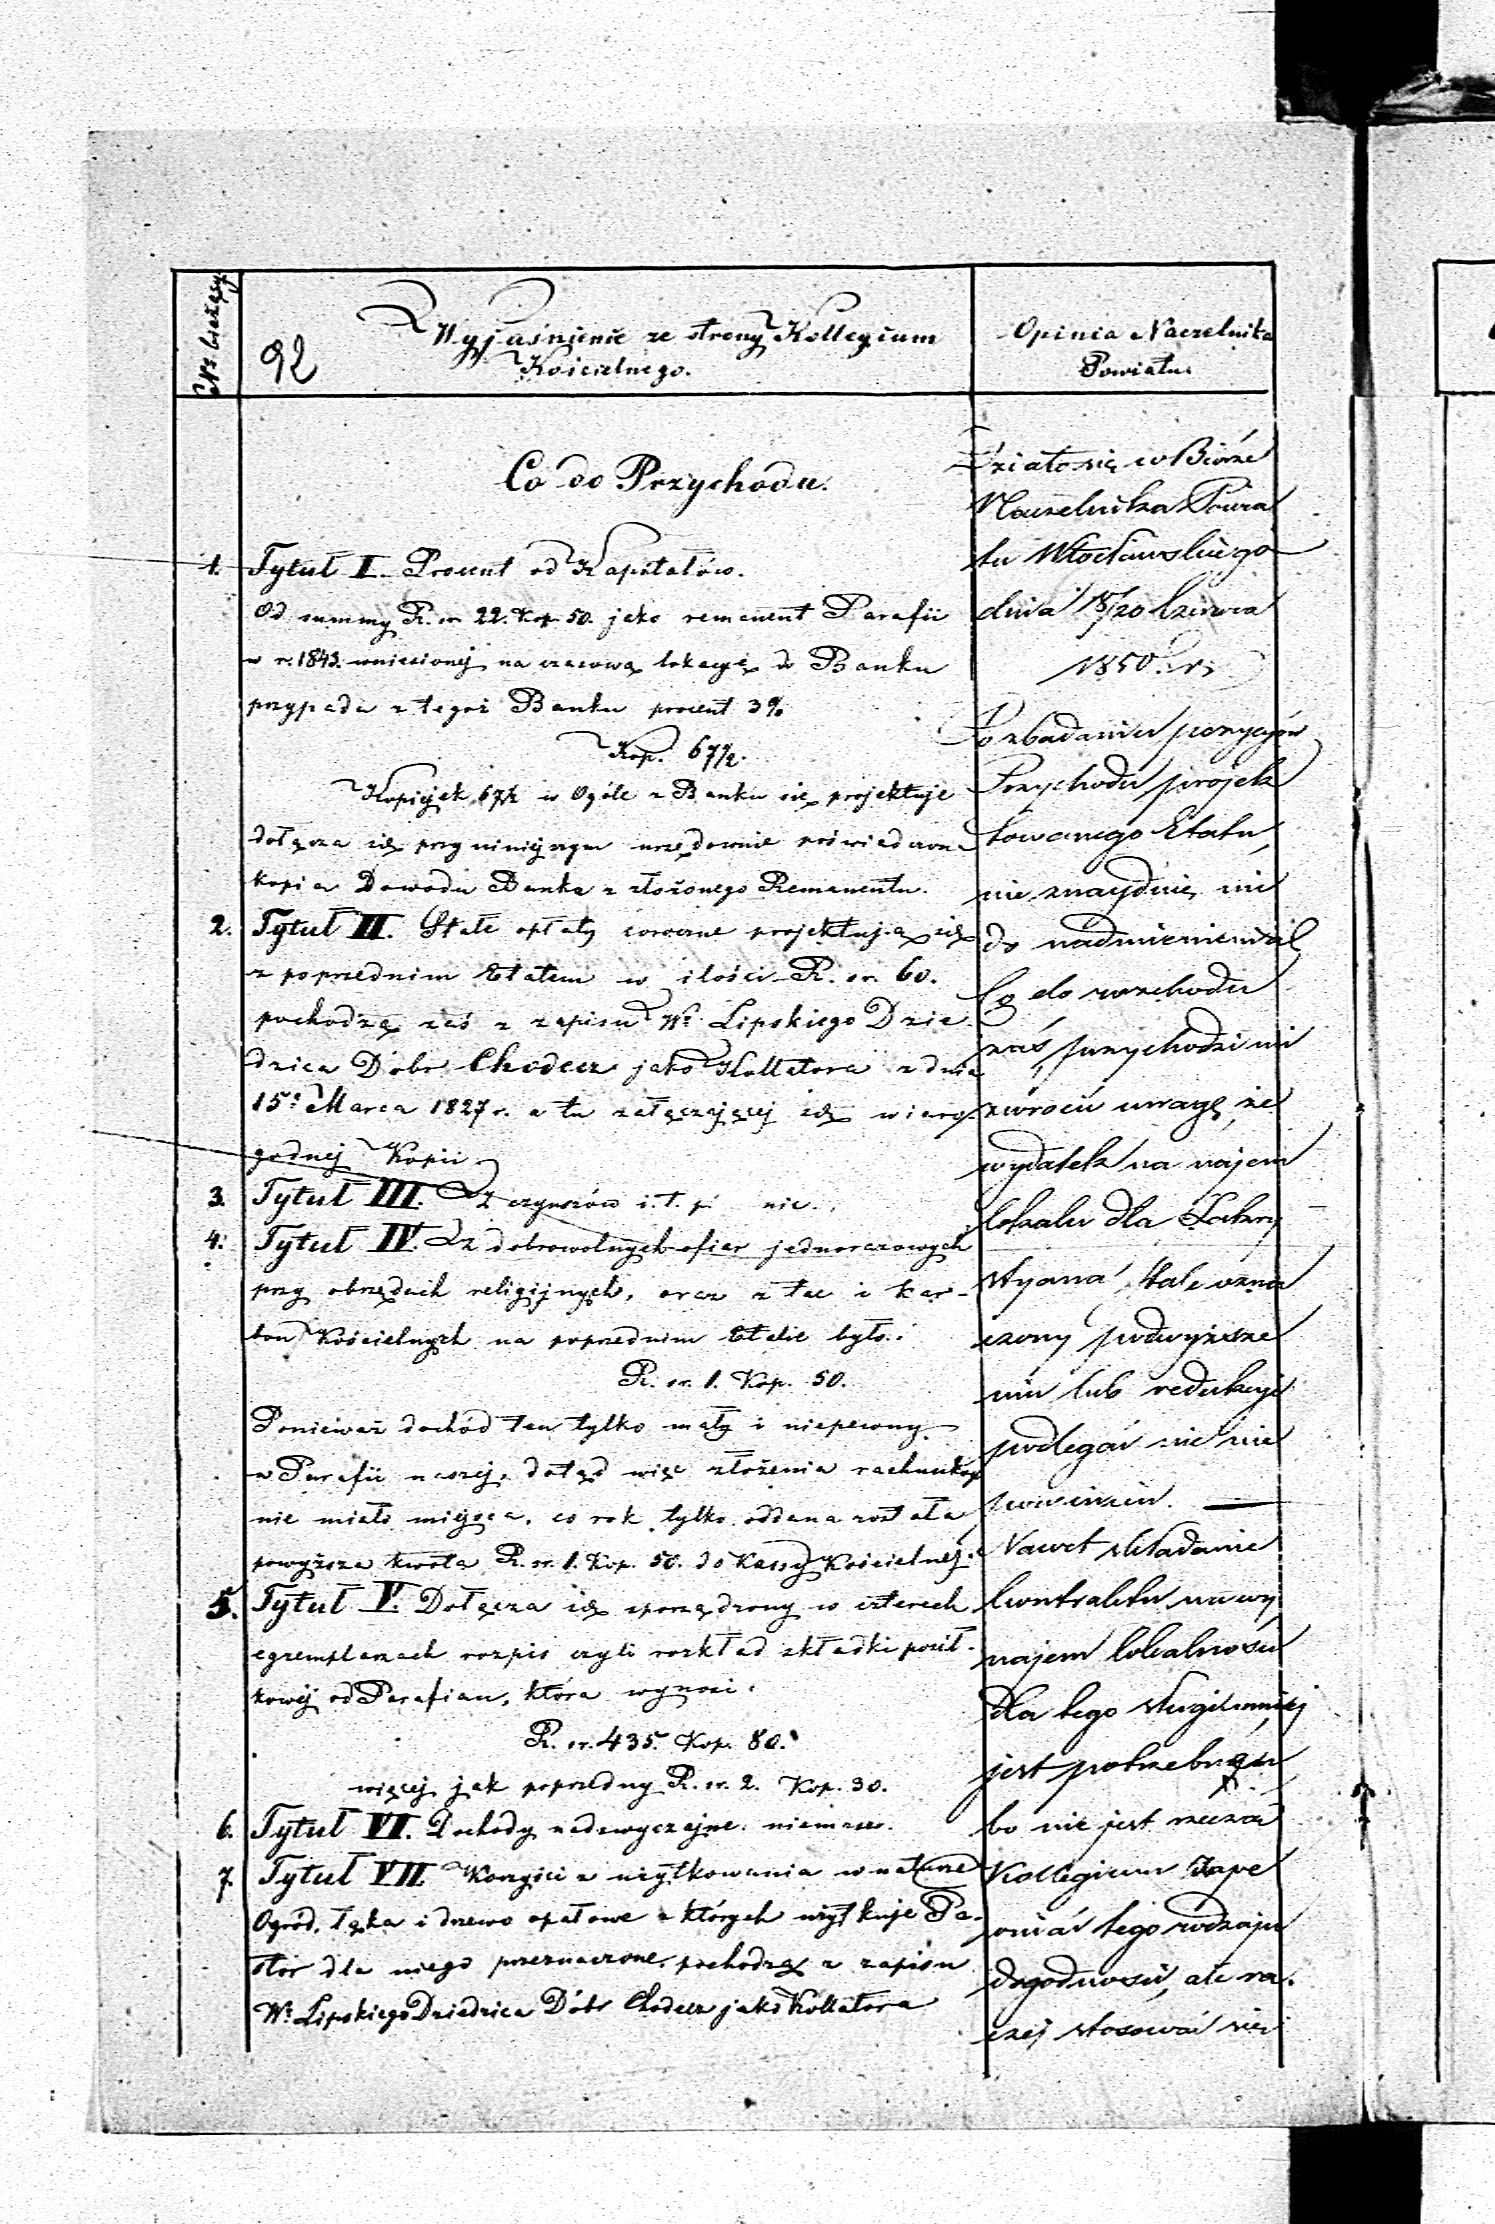 Nr bieżący
92
Wyjaśnienie ze strony Kollegium
Kościelnego.
Opinia Naczelnika
Powiatu.
Co do Przychodu.
1. Tytuł I. Procent od Kapitałów.
Od summy R. sr. 22. Kop. 50. jako remanent Parafii
w r. 1843. wniesionej na czasową lokacyę do Banku
przypada z tegoż Banku procent 3%
Kop. 67½.
Kopiejek 67½ w Ogóle z Banku się projektuje
dołącza się przy niniejszym urzędownie poświadczona
kopia Dowodu Banku z złożonego Remanentu.
2. Tytuł II. Stałe opłaty coroczne projektują się
z poprzednim Etatem w ilości R. sr. 60.
pochodzą zaś z zapisu Wo Lipskiego Dzie
dzica Dóbr Chodecz jako Kollatora z dnia
15: Marca 1827 r. a tu załączającej się wiaro-
godnej Kopii.
3. Tytuł III. Z czynszów i. t. p. nic.
4. Tytuł IV. Z dobrowolnych ofiar jednorazowych
przy obrzędach religijnych, oraz z tac i kar-
bon Kościelnych na poprzednim Etacie było:
R. sr. 1. Kop. 50.
Ponieważ dochód ten tylko mały i niepewny
w Parafii naszej, dotąd więc złożenia rachunków
nie miało miejsca, co rok tylko oddana została
powyższa kwota R. sr. 1. Kop. 50. do Kassy Kościelnej.
5. Tytuł V. Dołącza się sporządzony w czterech
egzemplarzach rozpis czyli rozkład składki posił-
kowej od Parafian, która wynosi.
R. sr. 435. Kop. 80.
więcej jak poprzedny R. sr. 2. Kop. 30.
6. Tytuł VI. Dochody nadzwyczajne. niemasz.
7. Tytuł VII Korzyści z użytkowania w naturze
Ogród, łąka i drzewo opałowe z których użytkuje Pa-
stor dla niego przeznaczone, pochodzą z zapisu
Wo Lipskiego Dziedzica Dóbr Chodecz jako Kollatora
Działo się w Biórze
Naczelnika Powia
tu Włocławskiego
dnia 18/20 Czerwca
1850. r.
Po zbadaniu pozycyów
Przychodu projek
towanego Etatu,
nie znayduię nic
do nadmienienia,
Co do rozchodu
zaś, przychodzi mi
zwrócić uwagę, że
wydatek na najem
lokalu dla Zakry
styana, stale ozna
czony podwyższe
niu lub redukcyi
podlegać nie nie
powinien. —
Nawet składanie
kontraktu na wy
najem lokalności
dla tego sługi mniej
jest potrzebnem
bo nie jest rzeczą
Kollegium zape
wniać tego rodzaju
dogodności, ale ra-
czej stosować się